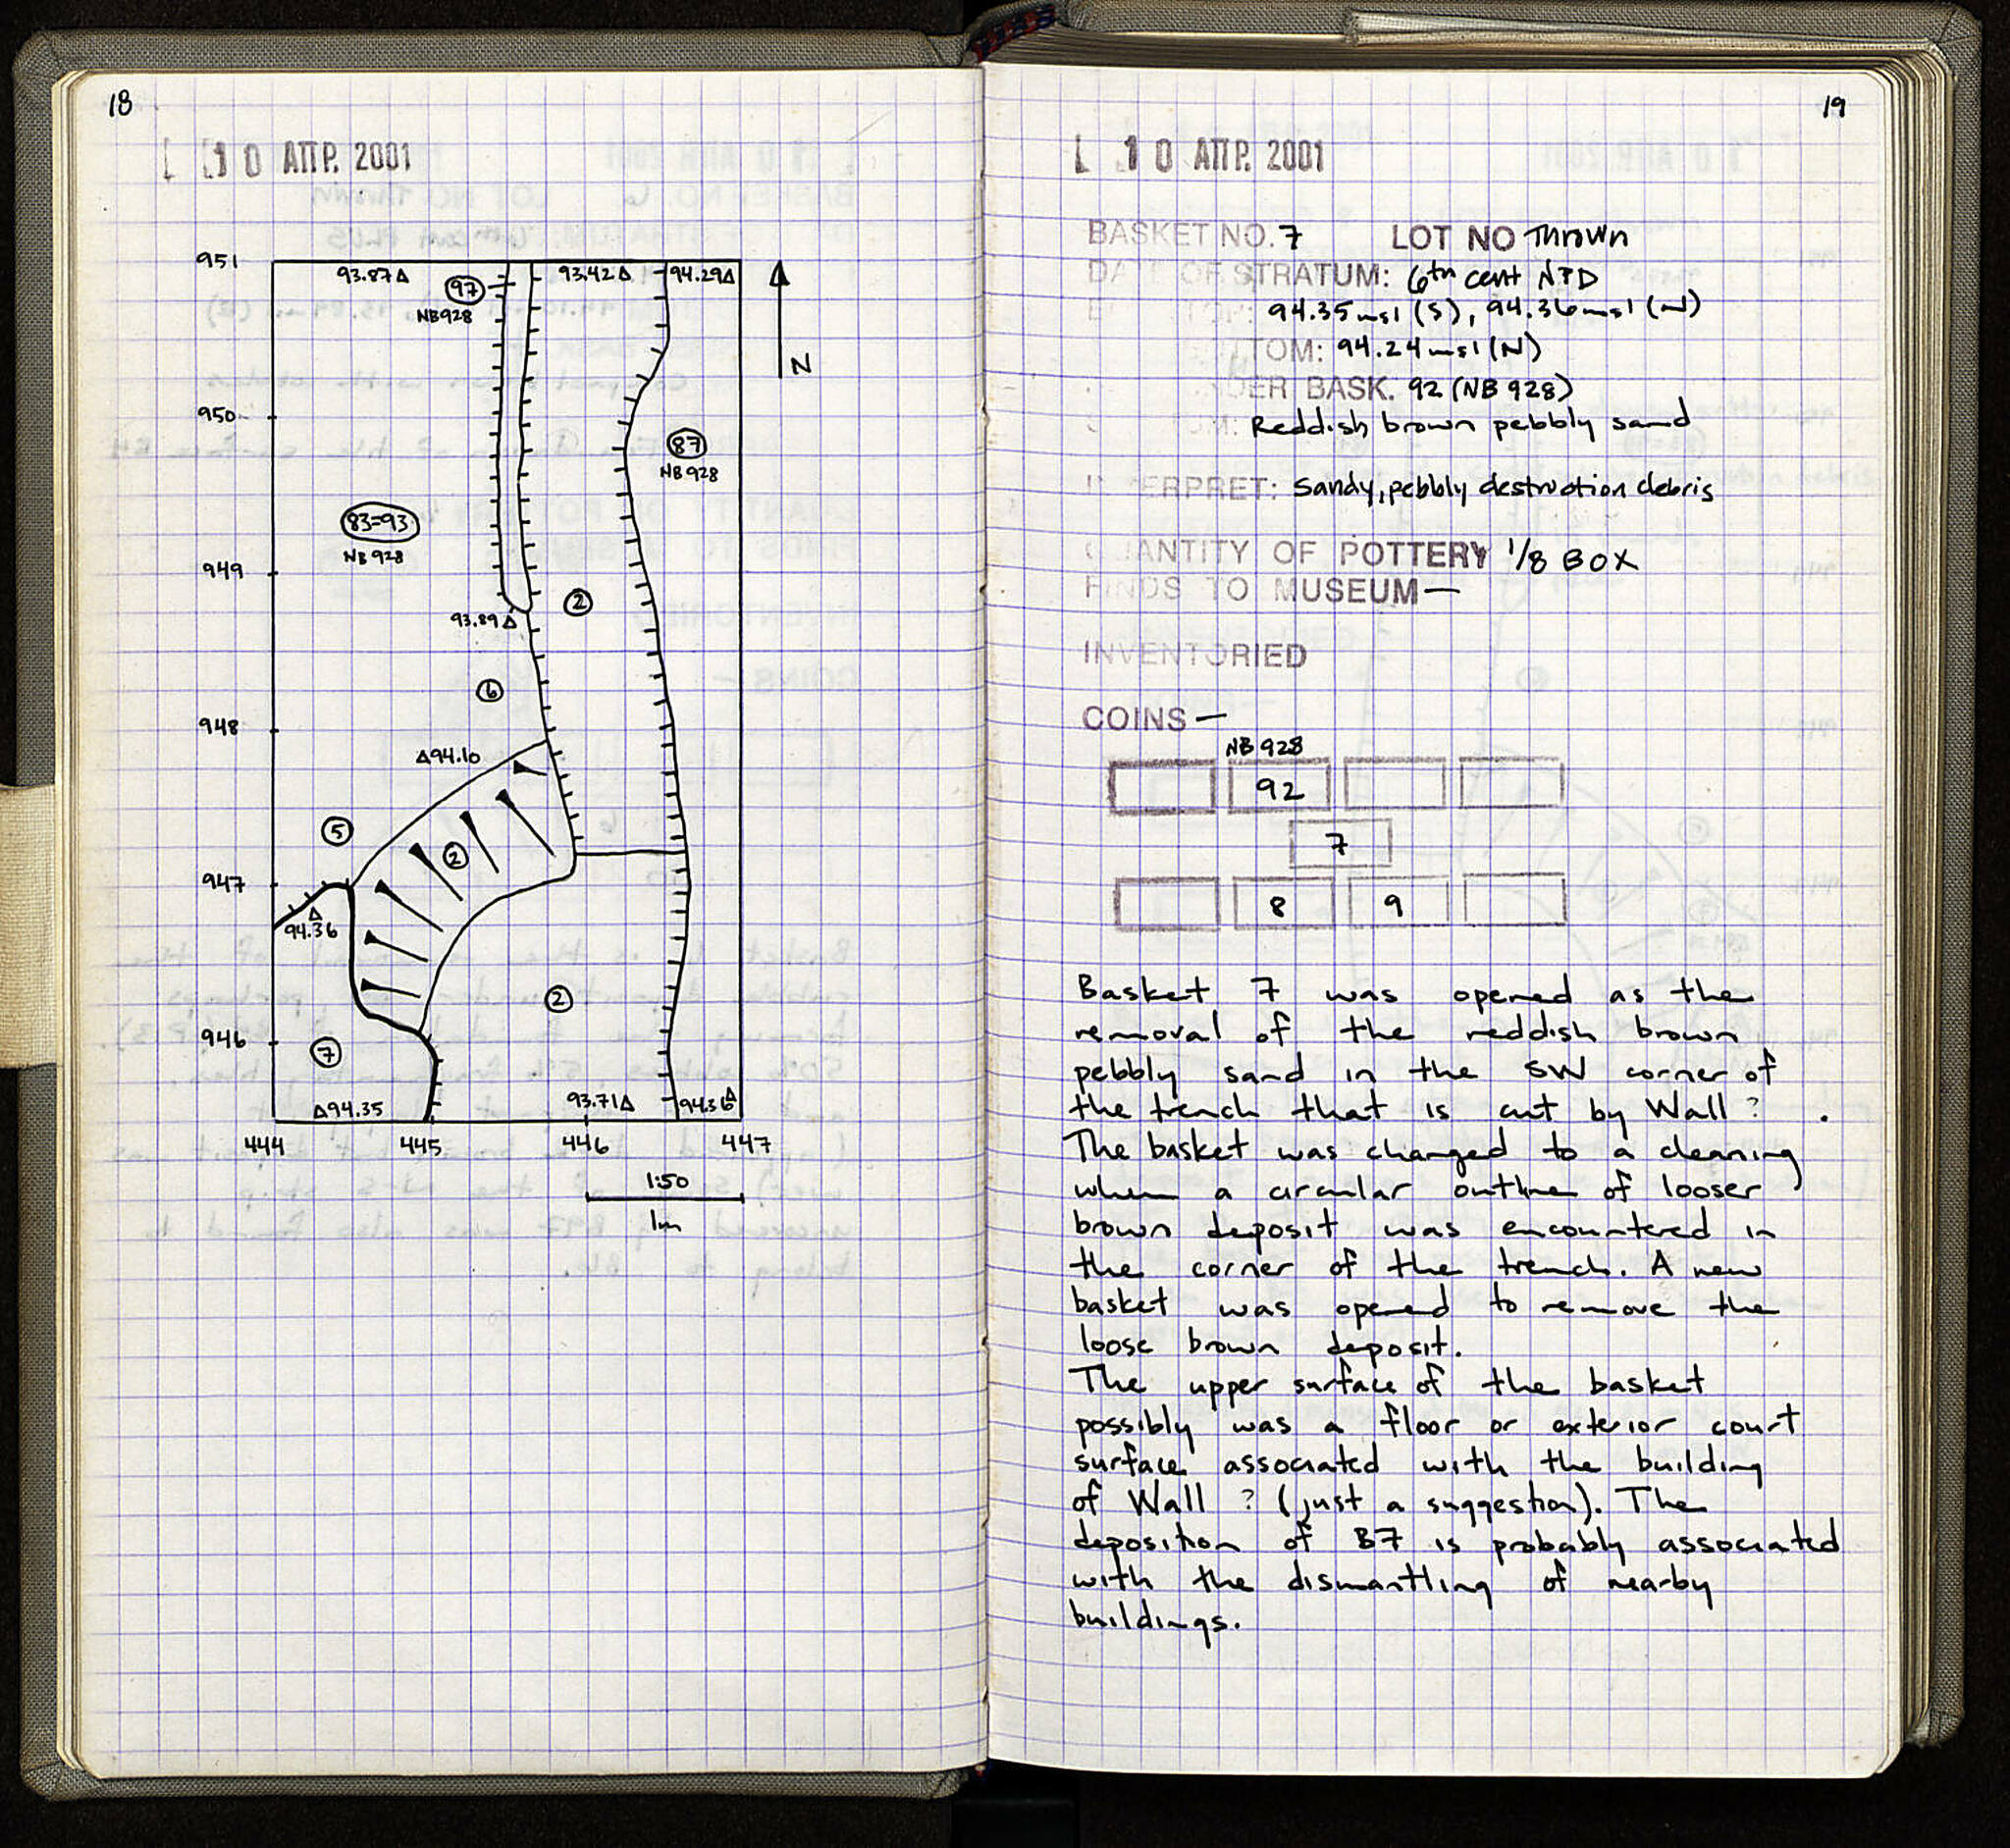 18
10 ΑΠΡ. 2001
951
93.87Δ
97
NB928
93.42Δ
94.29Δ
N
950
87
NB 928
83=93
NB 928
949
2
93.89Δ
6
948
Δ94.10
5
2
947
Δ
94.36
2
946
7
Δ94.35
93.71Δ
444
445
446
447
1:50
1m
19
10 ΑΠΡ. 2001
BASKET NO. 7 LOT NO Thrown
DA OF STRATUM: 6th cent NPD
94.35msl (S), 94.36msl (N)
TOM: 94.24msl (N)
DER BASK. 92 (NB 928)
Reddish brown pebbly sand
ERPRET: Sandy, pebbly destruction debris
QUANTITY OF POTTERY 1/8 BOX
FINDS TO MUSEUM—
INVENTORIED
COINS —
NB 928
92
7
8 9
Basket 7 was opened as the
removal of the reddish brown
pebbly sand in the SW corner of
the trench that is cut by Wall ? .
The basket was changed to a cleaning
when a circular outline of looser
brown deposit was encountered in
the corner of the trench. A new
basket was opened to remove the
loose brown deposit.
The upper surface of the basket
possibly was a floor or exterior court
surface associated with the building
of Wall ? (just a suggestion). The
deposition of B7 is probably associated
with the dismantling of nearby
buildings.